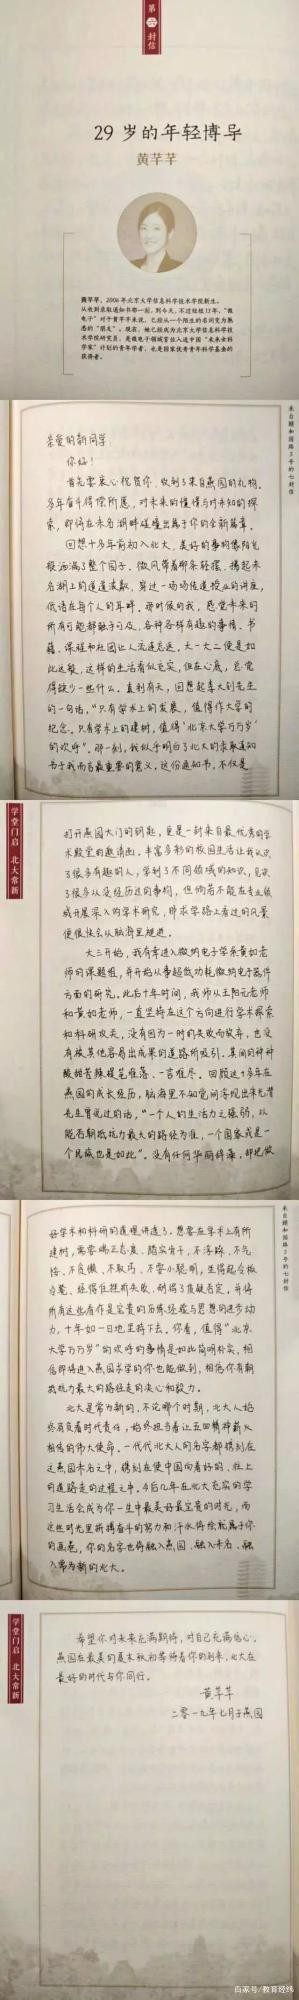 第六封信
29 岁的年轻博导
黄芊芊
黄芊芊，2006 年北京大学信息科学技术学院新生。
从收到录取通知书那一刻，到今天，不过短短 13 年，“微
电子”对于黄芊芊来说，已经从一个陌生的名词变为熟
悉的“朋友”。现在，她已经成为北京大学信息科学技
术学院研究员，是微电子领域首位入选中国“未来女科
学家”计划的青年学者，也是国家优秀青年科学基金的
获得者。
来自颐和园路5号的七封信
亲爱的新同学：
你好！
首先要衷心祝贺你，收到了来自燕园的礼物。
多年奋斗得偿所愿，对未来的憧憬与对未知的探
索，即将在未名湖畔碰撞出属于你的全新篇章。
回想十多年前初入北大，美好的事物像阳光
般洒满了整个园子。微风带着柳条轻摆，携起未
名湖上的道道波影，穿过一场场传道授业的讲座，
低语在每个人的耳畔。那时候的我，感觉未来的
所有可能都触手可及，各种各样有趣的事情、书
籍、课程和社团让人无遑忘返。大一大二便是如
此度过，这样的生活看似充实，但在心底，总觉
得缺少一些什么。直到有天，回想起李大钊先生
的一句话，“只有学术上的发展，值得作大学的
纪念。只有学术上的建树，值得‘北京大学万万岁’
的欢呼”。那一刻，我似乎明白了北大的录取通知
书于我而言最重要的意义。这份通知书，不仅是
学堂门启 北大常新
打开燕园大门的钥匙，更是一封来自最优秀的学
术殿堂的邀请函。丰富多彩的校园生活让我认识
了很多有趣的人，学到了不同领域的知识，见识
了很多从没经历过的事物，但倘若不能在专业领
域开展深入的学术研究，那求学路上看过的风景
便很快会从脑海里溜进。
大三开始，我有幸进入微纳电子学系黄如老
师的课题组，并开始从事超低功耗微纳电子器件
方面的研究。此后十年时间，我师从王阳元老师
和黄如老师，一直坚持在这个方向进行学术探索
和科研攻关，没有因为一时的失败而放弃，也没
有被其他容易出成果的道路所吸引。其间的种种
酸甜苦辣提笔难落、一言难尽。回顾这十多年在
燕园的成长经历，脑海里不知觉间浮现出朱光潜
先生曾说过的话，“一个人的生活力之强弱，以
能否朝抵抗力最大的路径为准，一个国家或是一
个民族也是如此”。没有任何华丽辞藻，却把做
来自颐和园路5号的七封信
好学术和科研的道理讲透了。想要在学术上有所
建树，需要端正态度、踏实肯干，不浮躁、不气
馁、不畏惧、不取巧、不耍小聪明，坐得起冷板
凳、经得住挫折失败、耐得了质疑否定，并将
所有这些看作是宝贵的历练经验与思想的进步动
力，十年如一日地坚持下去。你看，值得“北京
大学万万岁”的欢呼的事情是如此简明朴实，相
信即将进入燕园求学的你也能做到，相信你有朝
抵抗力最大的路径走的决心和毅力。
北大是常为新的，不论哪个时期，北大人始
终肩负着时代责任，始终担当着让五四精神薪火
相传的伟大使命。一代代北大人的名字都镌刻在
这燕园未名之中，镌刻在使中国向着好的，往上
的道路走的过程之中。今后几年在北大充实的学
习生活会成为你一生中最美好最宝贵的时光，而
这些时光里拼搏奋斗的努力和汗水将绘就属于你
的画卷，你的名字也将融入燕园、融入未名、融
入常为新的北大。
学堂门启 北大常新
希望你对未来充满期待，对自己充满信心。
燕园在最美的夏末秋初等待着你的到来，北大在
最好的时代与你同行。
黄芊芊
二零一九年七月于燕园
百家号/教育经纬